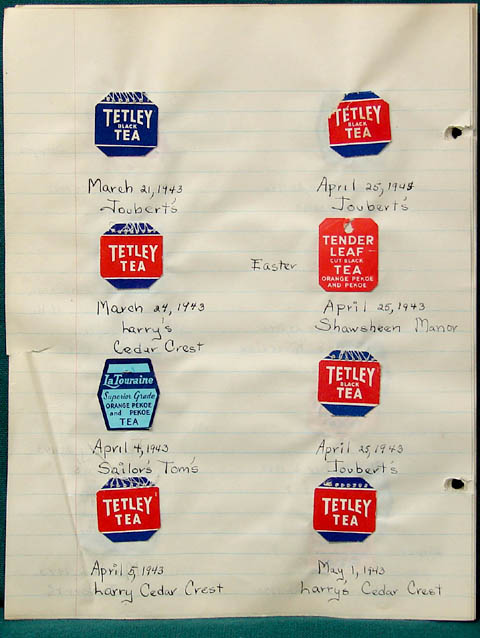 TETLEY
BLACK
TEA
March 21, 1943
Joubert's
TETLEY
TEA
March 24, 1943
Larry's
Cedar Crest
La Touraine
Superior Grade
ORANGE PEKOE
and PEKOE
TEA
April 4, 1943
Sailor's Tom's
TETLEY
TEA
April 5, 1943
Larry Cedar Crest
TETLEY
BLACK
TEA
April 25, 1943
Joubert's
Easter
TENDER
LEAF
CUT BLACK
TEA
ORANGE PEKOE
AND PEKOE
April 25, 1943
Shawsheen Manor
TETLEY
BLACK
TEA
April 25, 1943
Joubert's
TETLEY
TEA
May 1, 1943
Larrys Cedar Crest